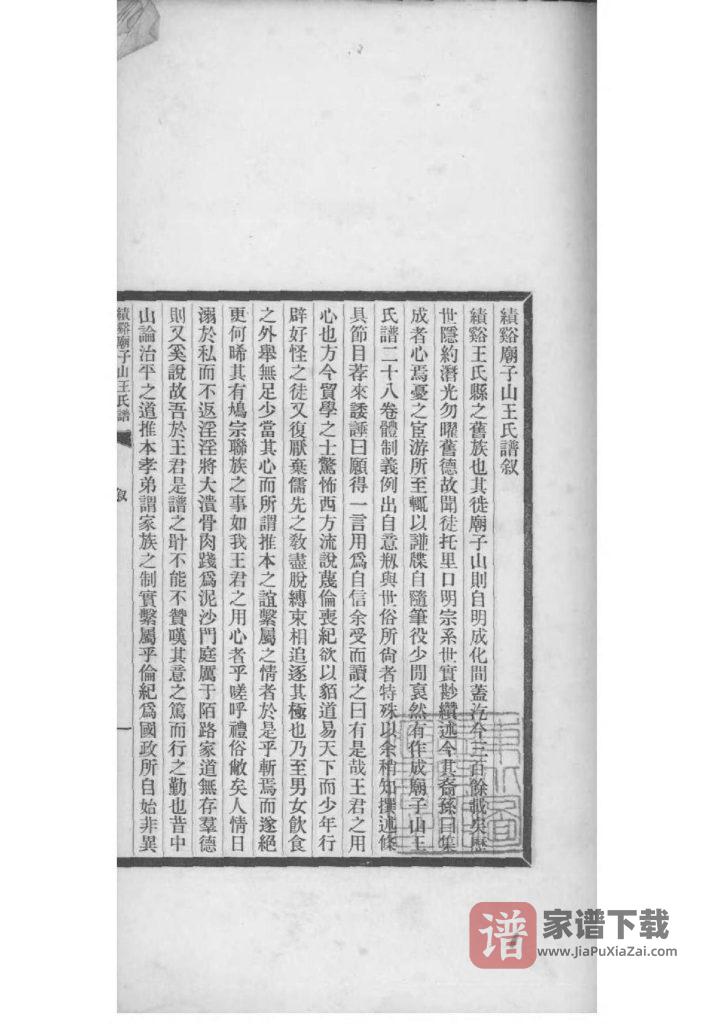 績谿廟子山王氏譜叙
績谿王氏縣之舊族也其徙廟子山則自明成化間蓋汔今三百餘載矣歷
世隱約潛光勿曜舊德故聞徒托里口明宗系世實尠纘述今其裔孫曰集
成者心焉憂之宦游所至輒以譜牒自隨筆役少閒裒然有作成廟子山王
氏譜二十八卷體制義例出自意刱與世俗所尙者特殊以余稍知撰述條
具節目荐來諉諈曰願得一言用爲自信余受而讀之曰有是哉王君之用
心也方今賀學之士驚怖西方流說蔑倫喪紀欲以貊道易天下而少年行
辟好怪之徒又復厭棄儒先之敎盡脫縛束相追逐其極也乃至男女飮食
之外舉無足少當其心而所謂推本之誼繫屬之情者於是乎斬焉而遂絕
更何晞其有鳩宗聯族之事如我王君之用心者乎嗟呼禮俗敝矣人情日
溺於私而不返淫淫將大潰骨肉踐爲泥沙門庭厲于陌路家道無存羣德
則又奚說故吾於王君是譜之
不能不贊嘆其意之篤而行之勤也昔中
山論治平之道推本孝弟謂家族之制實繫屬乎倫紀爲國政所自始非異
績谿廟子山王氏譜
叙
一
谱
家谱下载
www.JiaPuXiaZai.com